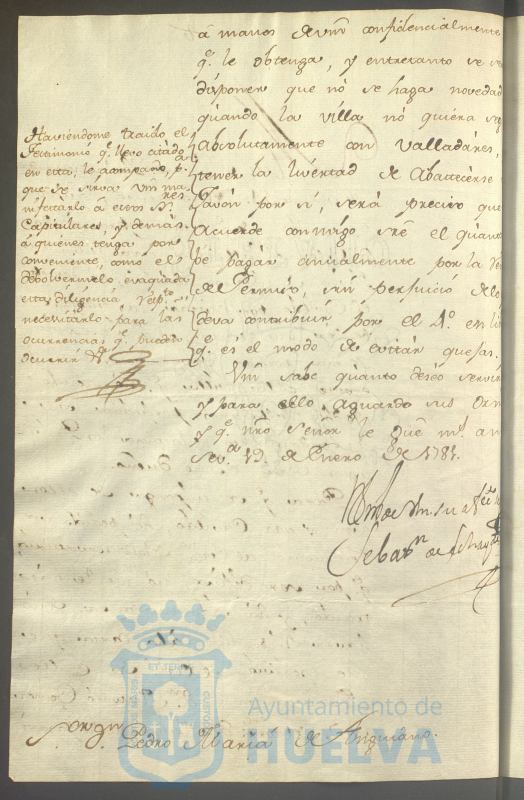 á manos de vm confidencialmente
qe. le obtenga, y entretanto se
disponer que no se haga novedad
quando la villa no quiera
absolutamente con Valladares,
tener la livertad de Abastecerse
Javon por si, será preciso que
Acuerde conmigo sre el quanto
pagar anualmente por la
del Permiso, sin perjuicio de lo
deva contribuir por el
qe. es el modo de evitar quejas.
Vm save quanto deseo servirle
y para ello aguardo sus Orns
y qe. nro Señor le gue ms. as
Seva. 19. de Enero de 1781.
Haviendome traido el
Testimonio qe. llevo citado
en esta, le acompaño, pa.
que se sirva vm ma
nifestarlo á esos Sres.
Capitulares, y demás
á quienes tenga por
conveniente, como el
debolvermelo evaquada
esta diligencia, respto.
necesitarlo para las
ocurrencias qe. pueden
ocurrir
Sebasn. de
Sor. Dn. Pedro Maria de Anguiano.
Ayuntamiento de
HUELVA